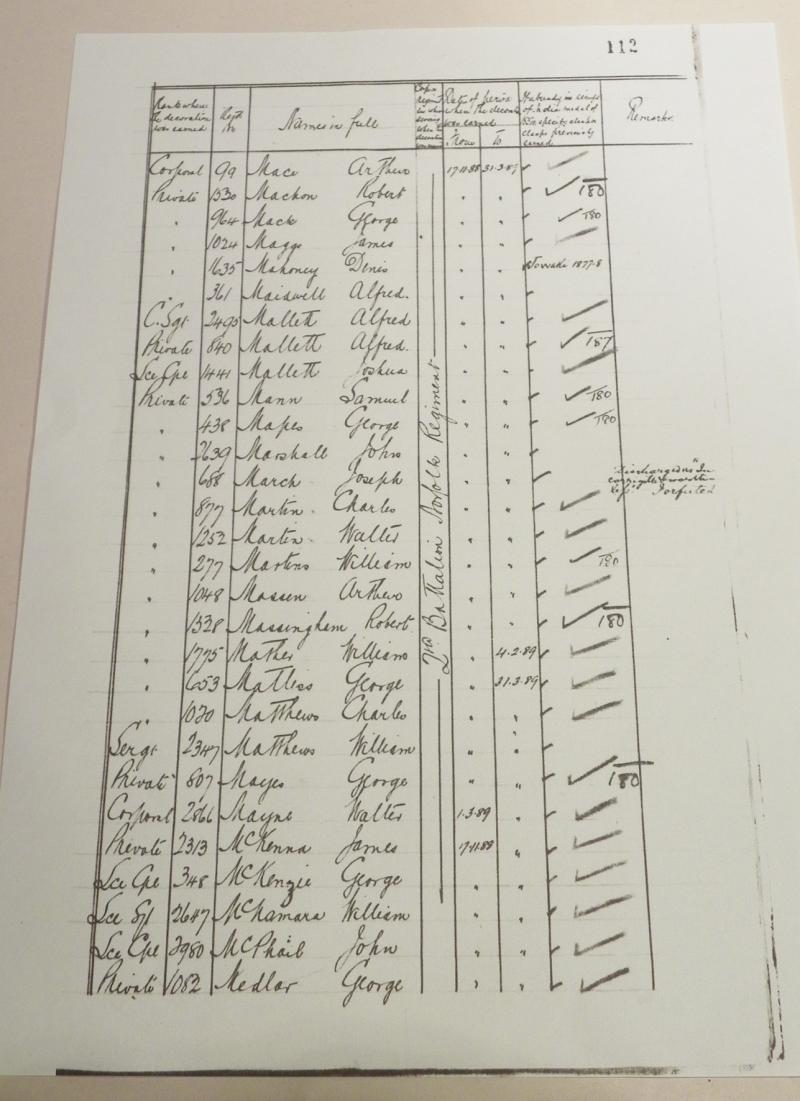 112
Rank where the decoration was earned | Regtl No | Names in full | Corps regiment in which serving when the decoration was earned | Date of period when the decoration was earned From To | If already in of India medal of specify clasp or clasps previously earned | Remarks.
Corporal 99 Mace Arthur 17.11.88 31.3.89
Private 1530 Machon Robert " " 180
" 964 Mack George " " 180
" 1024 Maggs James " "
" 1635 Mahoney Denis " " Jowaki 1877-8
" 361 Maidwell Alfred. " "
C. Sgt 2495 Mallett Alfred " "
Private 840 Mallett Alfred. " " 187
Lce Cpe 1441 Mallett Joshua " "
Private 536 Mann Samuel " " 180
" 438 Mapes George " " 180
" 2639 Marshall John " "
" 688 March Joseph " " "Discharged as Incorrigible & worthless" Forfeited
" 877 Martin Charles " "
" 1252 Martin Walter " "
" 277 Martins William " " 180
" 1048 Massen Arthur " "
" 1328 Massingham Robert " " 180
" 1775 Mather William " 4.2.89
" 653 Matless George " 31.3.89
" 1020 Matthews Charles " "
Sergt 2347 Matthews William " "
Private 807 Mayes George " " 180
Corporal 2866 Mayne Walter 1.3.89 "
Private 2313 McKenna James 17.11.88 "
Lce Cpe 348 McKenzie George " "
Lce Sgt 2647 McNamara William " "
Lce Cpe 2980 McPhail John " "
Private 1082 Medlar George " "
2nd Battalion Norfolk Regiment